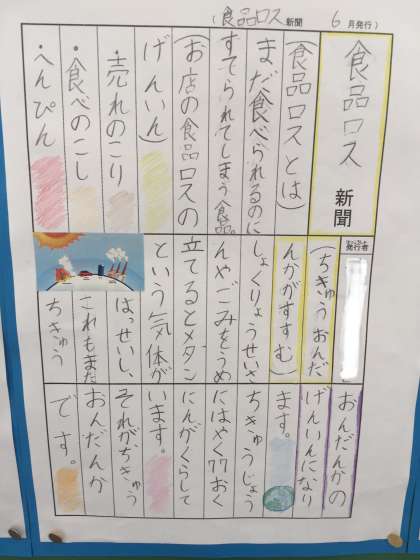 (食品ロス新聞 6月発行)
食品ロス新聞
(食品ロスとは)
まだ食べられるのに
すてられてしまう食品。
(お店の食品ロスの
げんいん)
・売れのこり
・食べのこし
・へんぴん
発行者
(ちきゅうおんだ
んかがすすむ)
しょくりょうせいさ
んやごみをうめ
立てるとメダン
という気体が
はっせいし、
これもまた
ちきゅう
おんだんかの
げんいんになり
ます。
ちきゅうじょう
にはやく77おく
にんがくらして
います。
それがちきゅう
おんだんか
です。